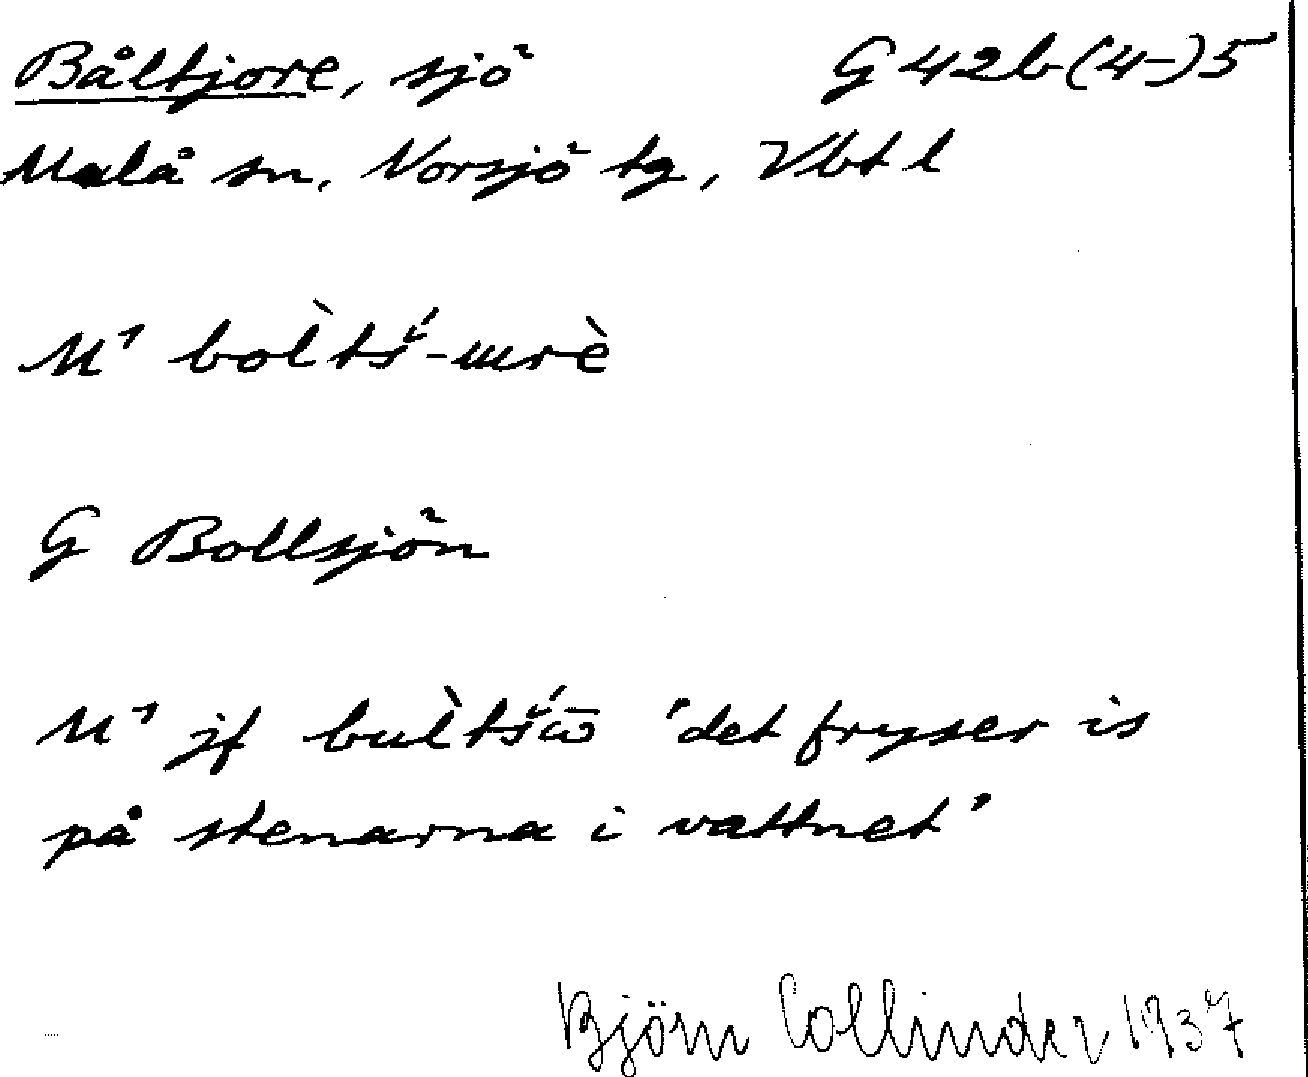 Båltjore, sjö G 42b(4-)5
Malå sn, Norsjö tg, Vbt l
M¹ bol̀tš́-ɯrè
G Bollsjön
M¹ jf bul̀tš́ω̄ 'det fryser is
på stenarna i vattnet'
Björn Collinder 1937